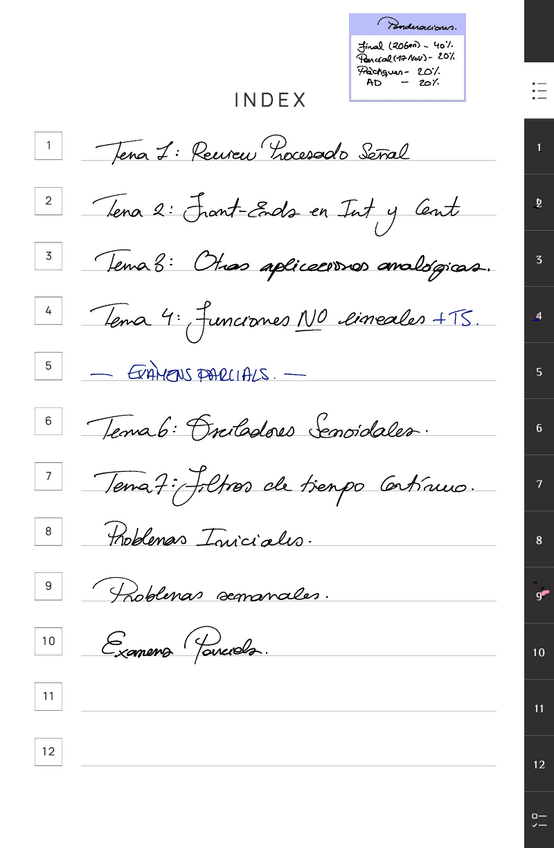 Ponderacions.
Final (20Gen) - 40%
Parcial (17 Nov) - 20%
Pràctiques - 20%
AD - 20%
INDEX
1 Tema 1: Review Procesado Señal
2 Tema 2: Front-Ends en Int y Cent
3 Tema 3: Otras aplicaciones analógicas.
4 Tema 4: Funciones NO lineales + TS.
5 — EXÀMENS PARCIALS. —
6 Tema 6: Osciladores Senoidales.
7 Tema 7: Filtros de tiempo Contínuo.
8 Problemas Iniciales.
9 Problemas semanales.
10 Examens Parcials.
11
12
1
2
3
4
5
6
7
8
9
10
11
12